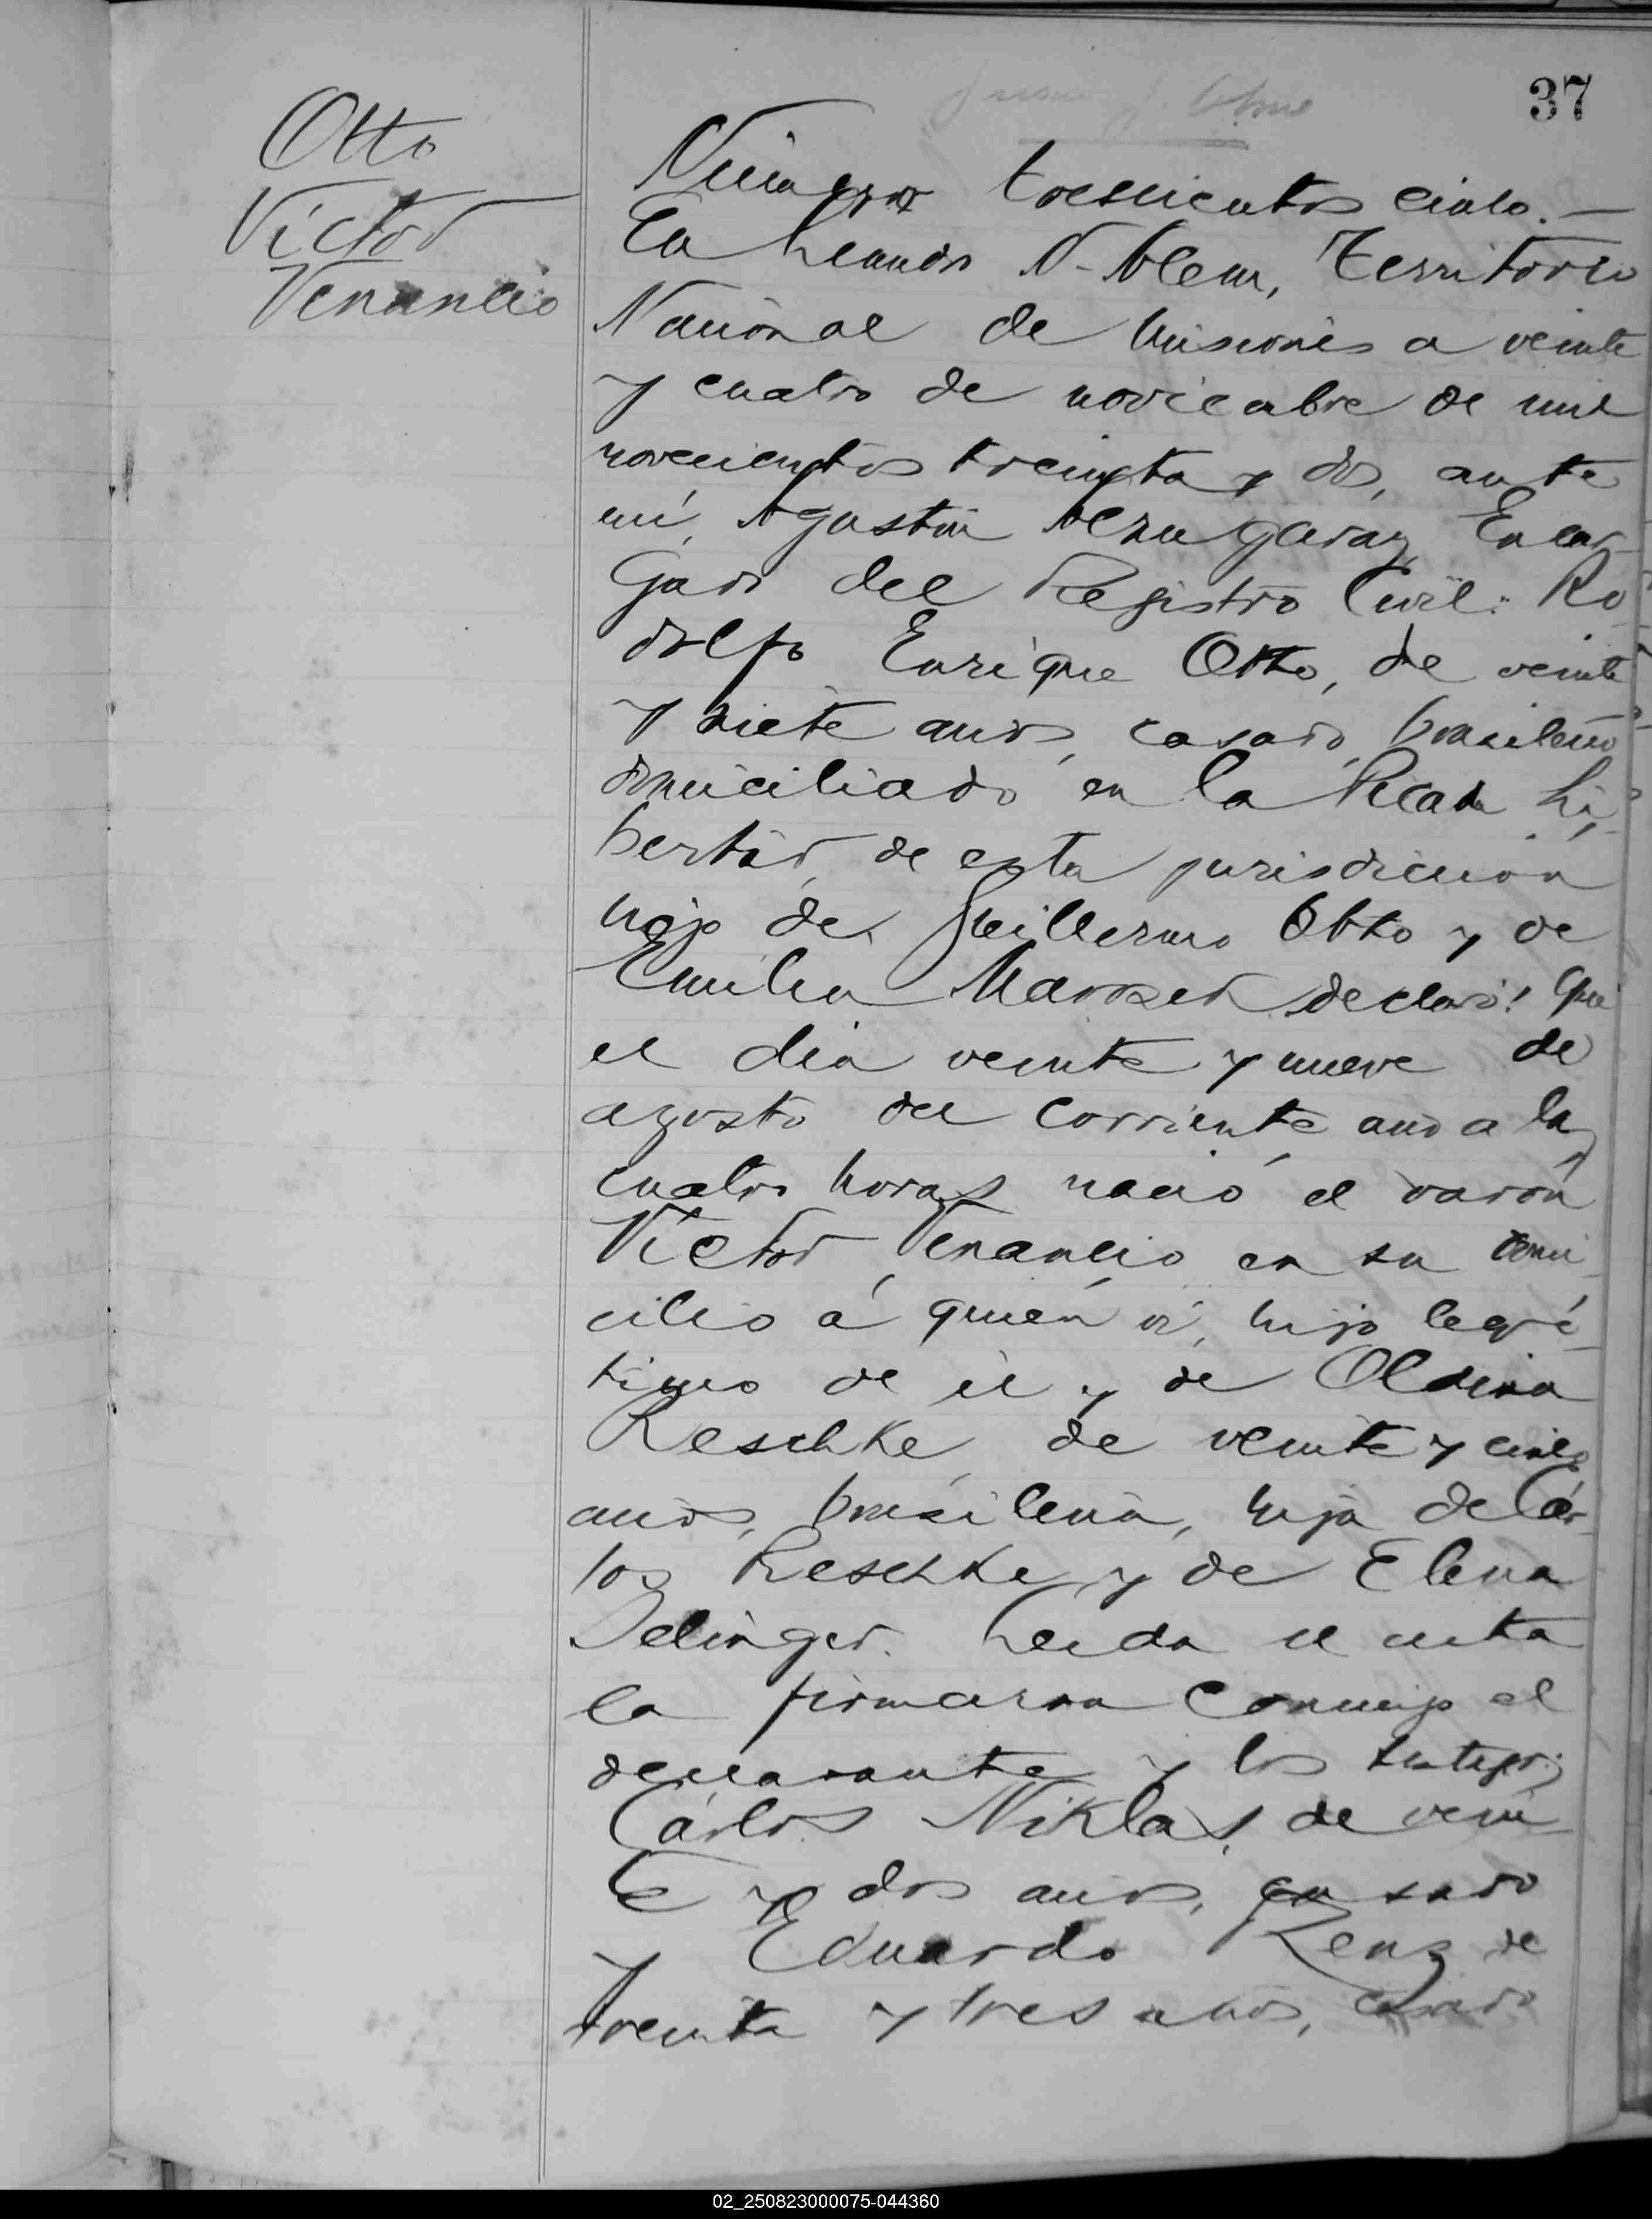 37
Otto
Víctor
Venancio
Número trescientos cinco.—
En Leandro N. Alem, Territorio
Nacional de Misiones a veinte
y cuatro de noviembre de mil
novecientos treinta y dos, ante
mí, Agustín Alzugaray, Encar-
gado del Registro Civil: Ro-
dolfo Enrique Otto, de veinte
y siete años, casado, brasileño
domiciliado en la Picada Li-
bertad, de esta jurisdicción
hijo de Guillermo Otto y de
Emilia declaró: que
el día veinte y nueve de
agosto del corriente año a las
cuatro horas nació el varón
Víctor Venancio, en su domi-
cilio á quién ví, hijo legí-
timo de él y de Oldina
Reschke, de veinte y cinco
años, brasileña, hija de Cár-
los Reschke y de Elena
Delinger. Leída el acta
la firmaron conmigo el
declarante y los testigos
Cárlos Niklas, de vein-
te y dos años, casado
y Eduardo Renz de
treinta y tres años, casado
02_250823000075-044360